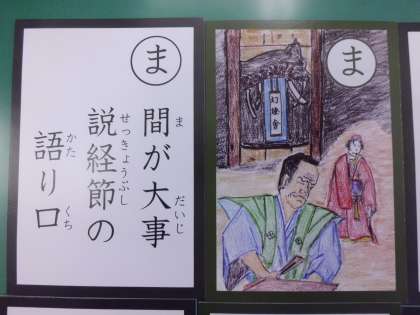 ま
間が大事
ま だいじ
説経節の
せっきょうぶし
語り口
かた くち
ま